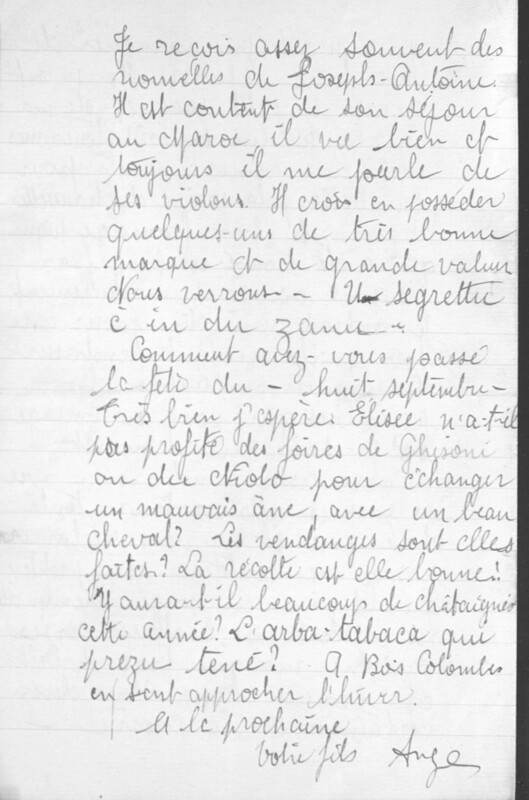 Je reçois assez souvent des
nouvelles de Joseph-Antoine.
Il est content de son séjour
au Maroc, il vie bien et
toujours il me parle de
ses violons. Il crois en posséder
quelques-uns de très bonne
marque et de grande valeur
Nous verrons - - U segrettu
è in du zanu -
Comment avez-vous passé
la fête du - huit septembre -
très bien j'espère. Elisée n'a-t-il
pas profité des foires de Ghisoni
ou du Niolo pour échanger
un mauvais âne avec un beau
cheval? Les vendanges sont elles
faites? La récolte est elle bonne!
Y aura-t-il beaucoup de châtaignes
cette année? L'arba-tabaca que
prezu tené? A Bois Colombes
en sent approcher l'hiver.
A la prochaine
Votre fils Ange